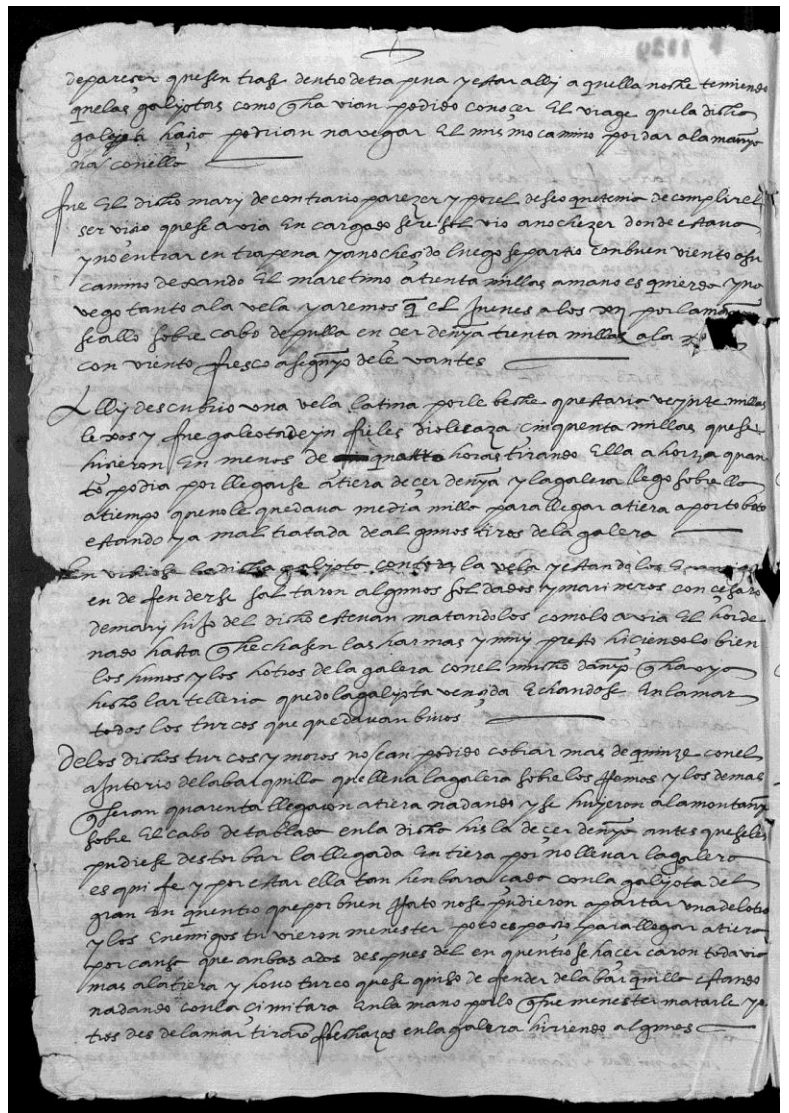 de pareçer quesentrase dentro de trapena y estar alli a quella noche temiendo
que las galiotas como q havian podido conoçer El viage que la dicha
galera haria podrian navegar El mismo camino por dar a la maña
na con ella
fue El dicho mari de contrario parezer y por el deseo que tenia de complir el
serviçio que se avia Encargado anochezer donde estava
y no entrar en trapena y anocheçido luego se partio con buen viento a su
camino dexando El maretimo a trenta millas a mano esquierda y na
vego tanto a la vela y a remos q el Jueves a los por la
se allo sobre cabo de pulla en çerdenya trenta millas a la
con viento fresco de levantes
Alli descubrio una vela latina por lebeche que staria veynte millas
lexos y fue galeota de diole caza çinquenta millas que se
hizieron En menos de quatro horas tirando Ella a horza quan
to podia por llegarse a tiera de çerdenya y la galera llego sobrella
a tiempo que no le quedava media milla para llegar a tiera a porto
estando ya mal tratada de algunos tiros de la galera
la dicha galiota con la vela y estando los
en defenderse saltaron algunos soldados y marineros con çesaro
de mari hijo del dicho estevan matandolos como lo avia El horde
nado hasta q hechasen las harmas y muy presto haçiendolo bien
los hunos y los hotros de la galera con el mucho danyo q havya
hecho lartelleria quedo la galiota vençida Echandose En la mar
todos los turcos que quedavan bivos
De los dichos turcos y moros no sean podido cobrar mas de quinze con el
ajutorio de la barquilla que lleva la galera sobre los Remos y los demas
q seran quarenta llegaron a tiera nadando y se huyeron a la montanya
sobre El cabo de tablado en la dicha hisla de çerdenya antes que seles
pudiese destorbar la llegada En tiera por no llevar la galera
esquife y por estar ella tan henbaraçada con la galiota del
gran Enquentro que por buen Rato no se pudieron apartar una del otro
y los Enemigos tuvieron menester poco espaçio para llegar a tiera
por causa que anbas a dos despues del enquentro se haçercaron todavia
mas a la tiera y hovo turco que se quiso defender de la barquilla estando
nadando con la çimitara En la mano por lo q fue menester matarle y o
tros desde la mar tiraro flechazos en la galera hiriendo algunos